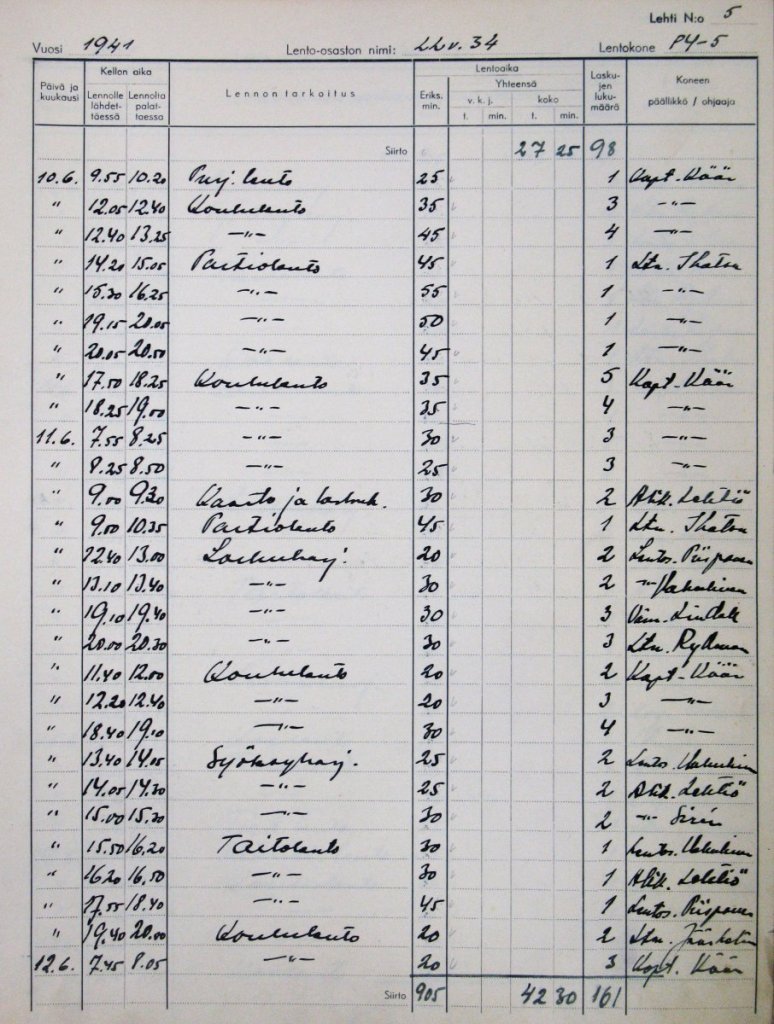 Lehti N:o 5
Vuosi 1941 Lento-osaston nimi: LLv. 34 Lentokone PY-5
Päivä ja kuukausi Kellon aika Lennolle lähdettäessä Lennolta palattaessa Lennon tarkoitus Lentoaika Eriks. min. Yhteensä v. k. j. t. min. koko t. min. Laskujen lukumäärä Koneen päällikkö / ohjaaja
Siirto 27 25 98
10.6. 9.55 10.20 Purj. lento 25 1 Kapt. Kään
" 12.05 12.40 Koululento 35 3 –"–
" 12.40 13.25 –"– 45 4 –"–
" 14.20 15.05 Partiolento 45 1 Ltn.
" 15.30 16.25 –"– 55 1 –"–
" 19.15 20.05 –"– 50 1 –"–
" 20.05 20.50 –"– 45 1 –"–
" 17.50 18.25 Koululento 35 5 Kapt. Kään
" 18.25 19.00 –"– 35 4 –"–
11.6. 7.55 8.25 –"– 30 3 –"–
" 8.25 8.50 –"– 25 3 –"–
" 9.00 9.30 ja 30 2 Alik. Lehtiö
" 9.00 10.35 Partiolento 45 1 Ltn.
" 12.40 13.00 Laskuharj. 20 2 Lentos. Piisponen
" 13.10 13.40 –"– 30 2 –"–
" 19.10 19.40 –"– 30 3
" 20.00 20.30 –"– 30 3 Ltn. Rydman
" 11.40 12.00 Koululento 20 2 Kapt. Kään
" 12.20 12.40 –"– 20 3 –"–
" 18.40 19.10 –"– 30 4 –"–
" 13.40 14.05 Syöksyharj. 25 2 Lentos.
" 14.05 14.30 –"– 25 2 Alik. Lehtiö
" 15.00 15.30 –"– 30 2 –"– Sirén
" 15.50 16.20 Taitolento 30 1 Lentos.
" 16.20 16.50 –"– 30 1 Alik. Lehtiö
" 17.55 18.40 –"– 45 1 Lentos. Piisponen
" 19.40 20.00 Koululento 20 2 Ltn.
12.6. 7.45 8.05 –"– 20 3 Kapt. Kään
Siirto 905 42 30 161